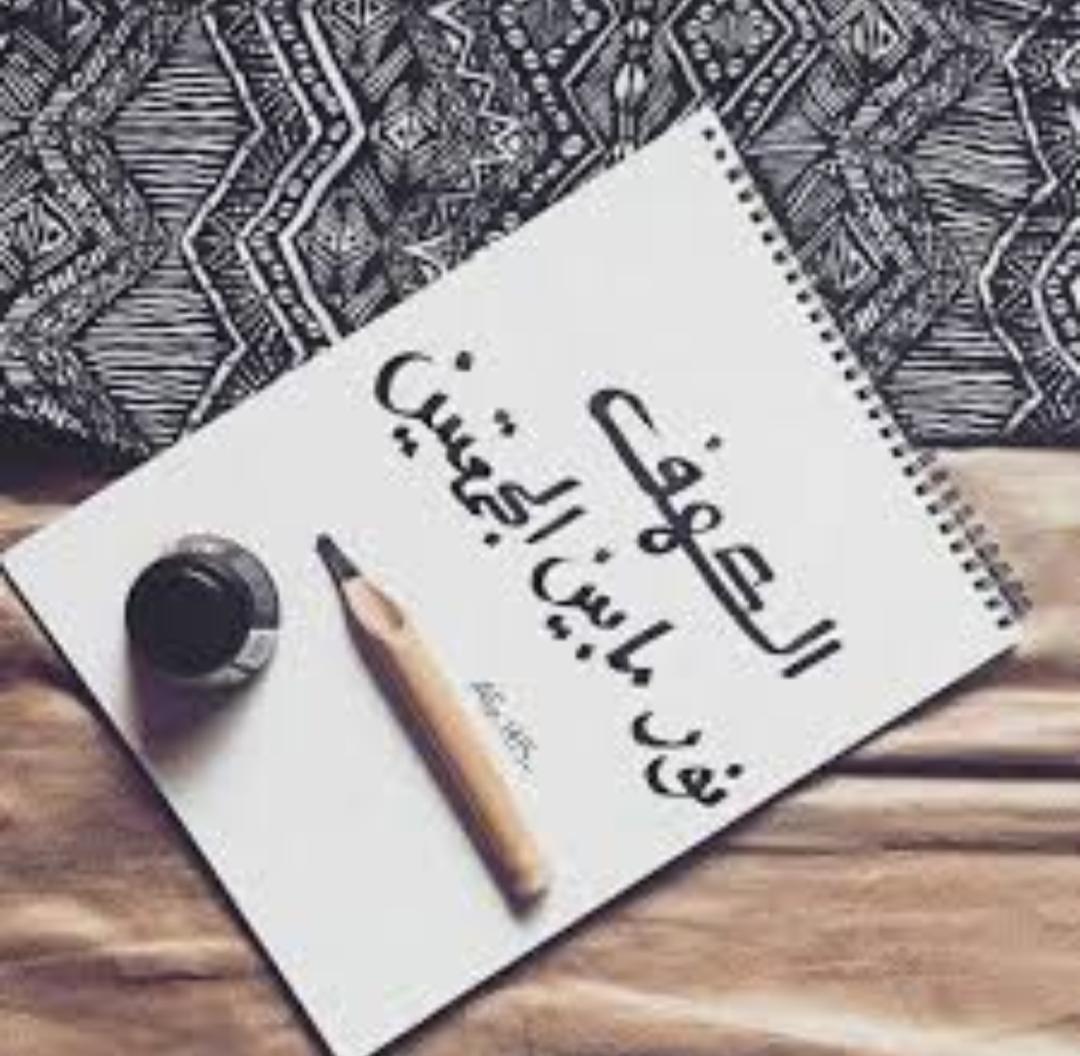 الكهف
نور ما بين الجمعتين